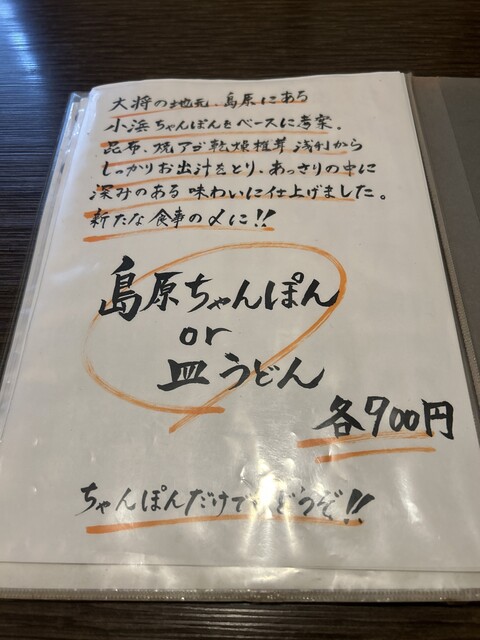 大将の地元、島原にある
小浜ちゃんぽんをベースに考案。
昆布、焼アゴ、乾燥椎茸、浅利から
しっかりお出汁をとり、あっさりの中に
深みのある味わいに仕上げました。
新たな食事の〆に!!
島原ちゃんぽん
or
皿うどん
各900円
ちゃんぽんだけでもどうぞ!!